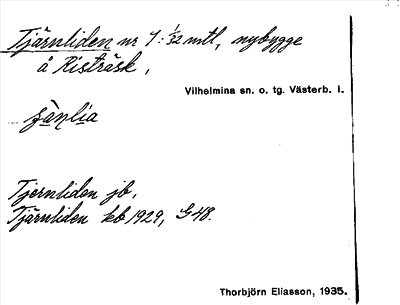 Tjärnliden nr 1: 1/32 mtl, nybygge
å Risträsk,
Vilhelmina sn. o. tg. Västerb. l.
Tjernliden jb,
Tjärnliden kb 1929, G 48.
Thorbjörn Eliasson, 1935.